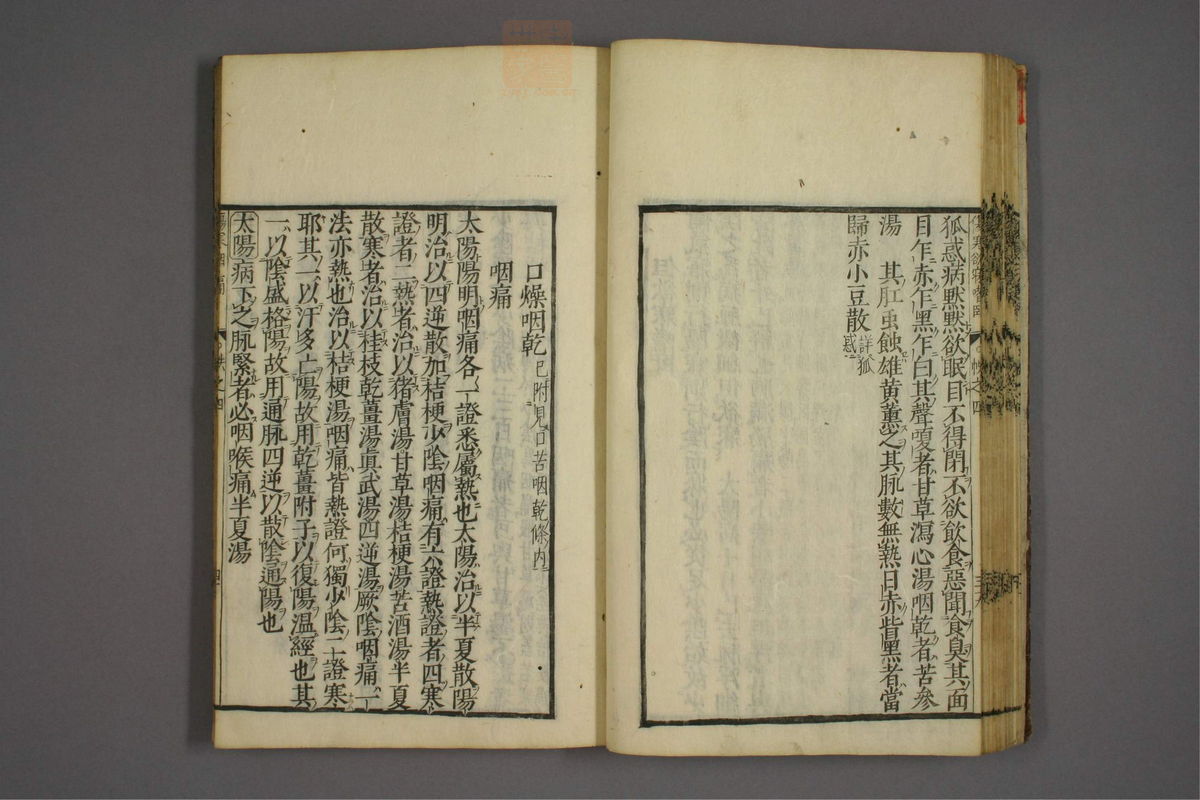 狐惑病默默欲眠目不得閉不欲飲食惡聞食臭其面
目乍赤乍黑乍白其聲嗄者甘草瀉心湯咽乾者苦參
湯　其肛虫蝕雄黄薫之其脉數無熱目赤眥黑者當
歸赤小豆散詳狐惑
口燥咽乾已附見口苦咽乾條内
咽痛
太陽陽明咽痛各一證悉屬熱也太陽治以半夏散陽
明治以四逆散加桔梗少陰咽痛有六證熱證者四寒
證者二熱者治以猪膚湯甘草湯桔梗湯苦酒湯半夏
散寒者治以桂枝乾薑湯眞武湯四逆湯厥陰咽痛一
法亦熱也治以桔梗湯咽痛皆熱證何獨少陰二證寒
耶其一以汗多亡陽故用乾薑附子以復陽温經也其
一以陰盛格陽故用通脉四逆以散陰通陽也
太陽病下之脉緊者必咽喉痛半夏湯